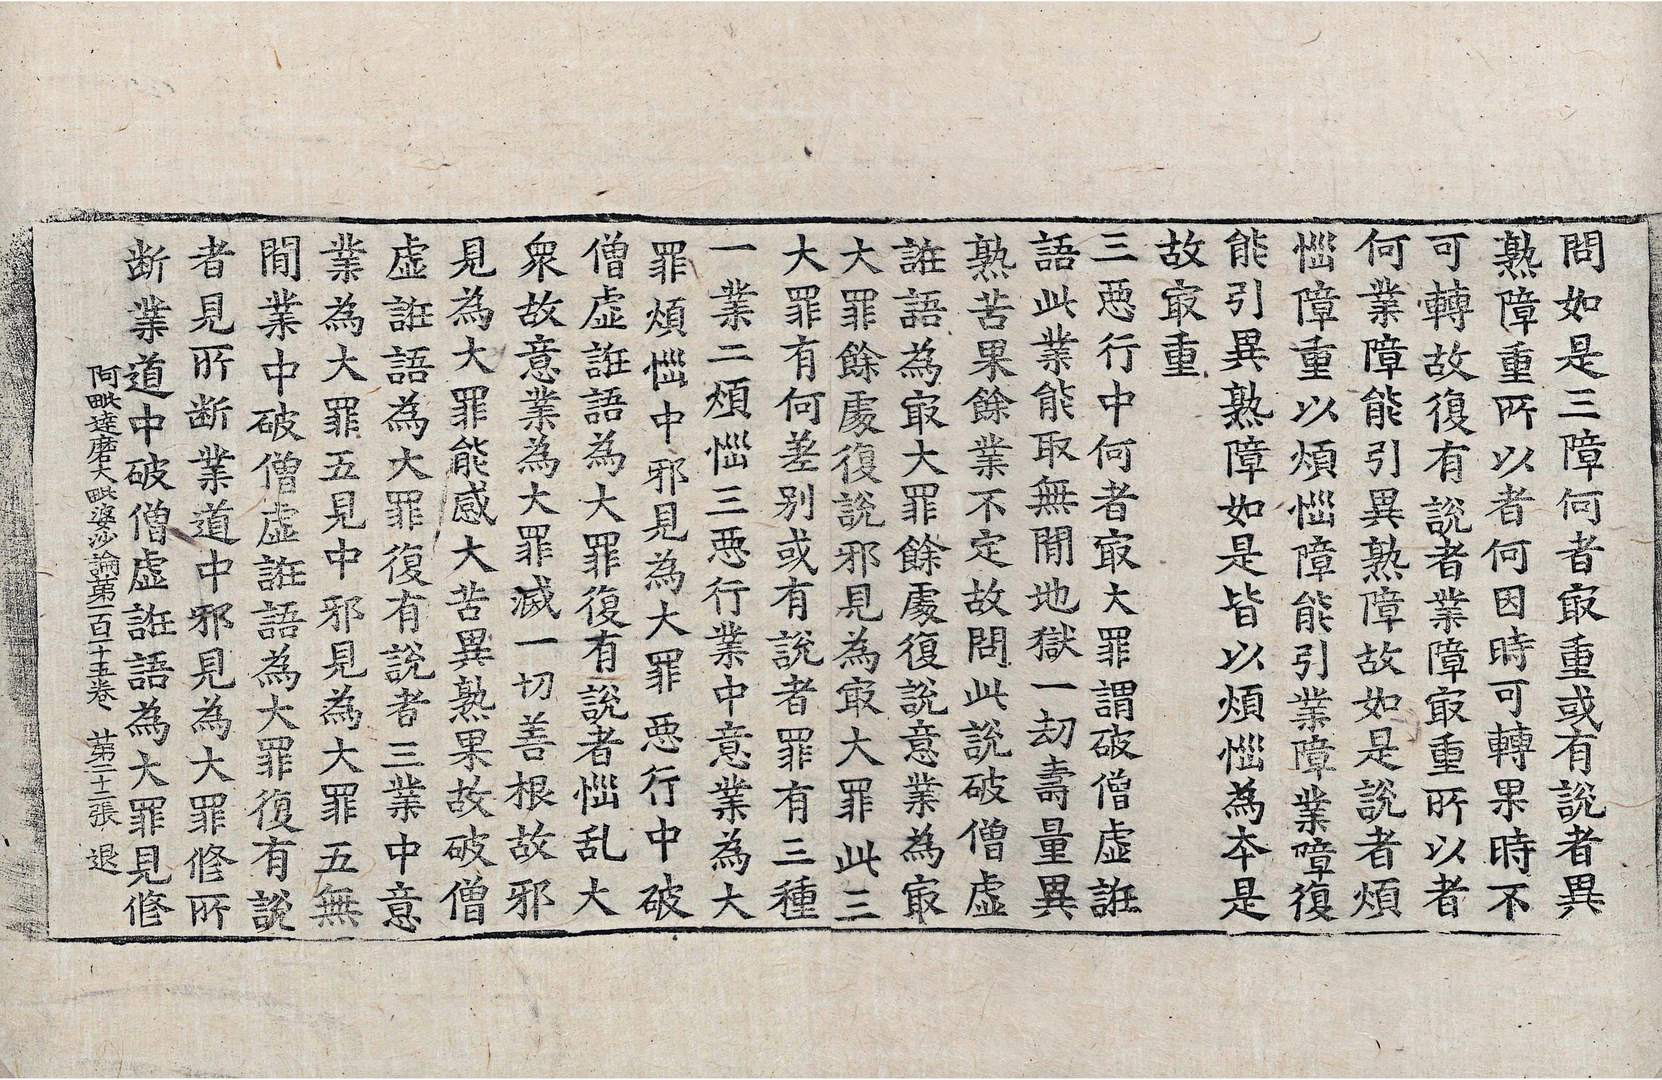 問如是三障何者㝡重或有說者異
熟障重所以者何因時可轉果時不
可轉故復有說者業障㝡重所以者
何業障能引異熟障故如是說者煩
惱障重以煩惱障能引業障業障復
能引異熟障如是皆以煩惱為本是
故㝡重
三惡行中何者㝡大罪謂破僧虛誑
語此業能取無間地獄一劫壽量異
熟苦果餘業不定故問此說破僧虛
誑語為㝡大罪餘處復說意業為㝡
大罪餘處復說邪見為㝡大罪此三
大罪有何差别或有說者罪有三種
一業二煩惱三惡行業中意業為大
罪煩惱中邪見為大罪惡行中破
僧虛誑語為大罪復有說者惱乱大
衆故意業為大罪滅一切善根故邪
見為大罪能感大苦異熟果故破僧
虛誑語為大罪復有說者三業中意
業為大罪五見中邪見為大罪五無
間業中破僧虛誑語為大罪復有說
者見所断業道中邪見為大罪修所
断業道中破僧虛誑語為大罪見修
阿毗達磨大毗婆沙論第一百十五卷 苐二十二張 退